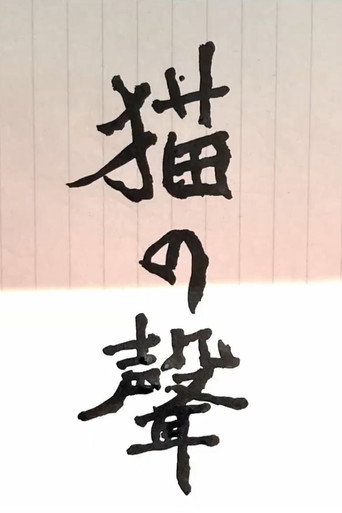 猫の聲